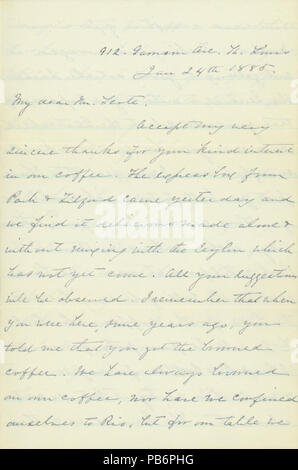 912 Garrison Ave. St. Louis
Jan 24th 1885.
My dear Mr.
Accept my very
sincere thanks for your kind interest
in our coffee. The express box from
Park & Tilford came yesterday and
we find it delicious made alone &
without mixing with the Ceylon which
has not yet come. All your suggestions
will be observed. I remember that when
you were here, some years ago, you
told me that you got the browned
coffee. We have always browned
our own coffee, nor have we confined
ourselves to Rio, but for our table we
alamy
Image ID: PB6PHG
www.alamy.com